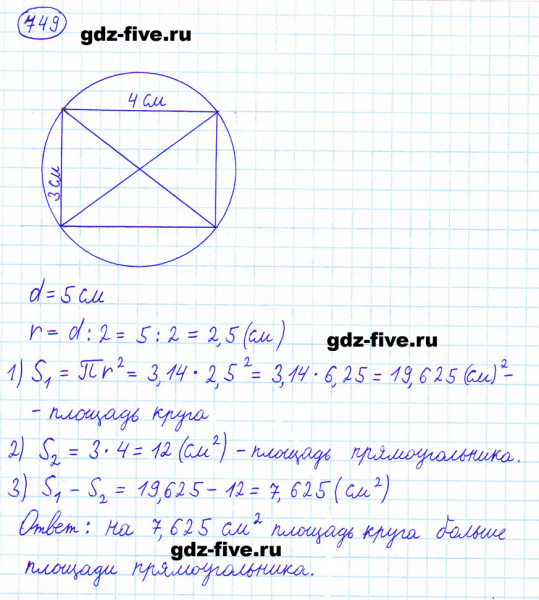 749
gdz-five.ru
4 см
3 см
d = 5 см
r = d : 2 = 5 : 2 = 2,5 (см)
gdz-five.ru
1) S₁ = πr² = 3,14 · 2,5² = 3,14 · 6,25 = 19,625 (см)² -
- площадь круга
2) S₂ = 3 · 4 = 12 (см²) - площадь прямоугольника.
3) S₁ - S₂ = 19,625 - 12 = 7,625 (см²)
Ответ: на 7,625 см² площадь круга больше
gdz-five.ru
площади прямоугольника.